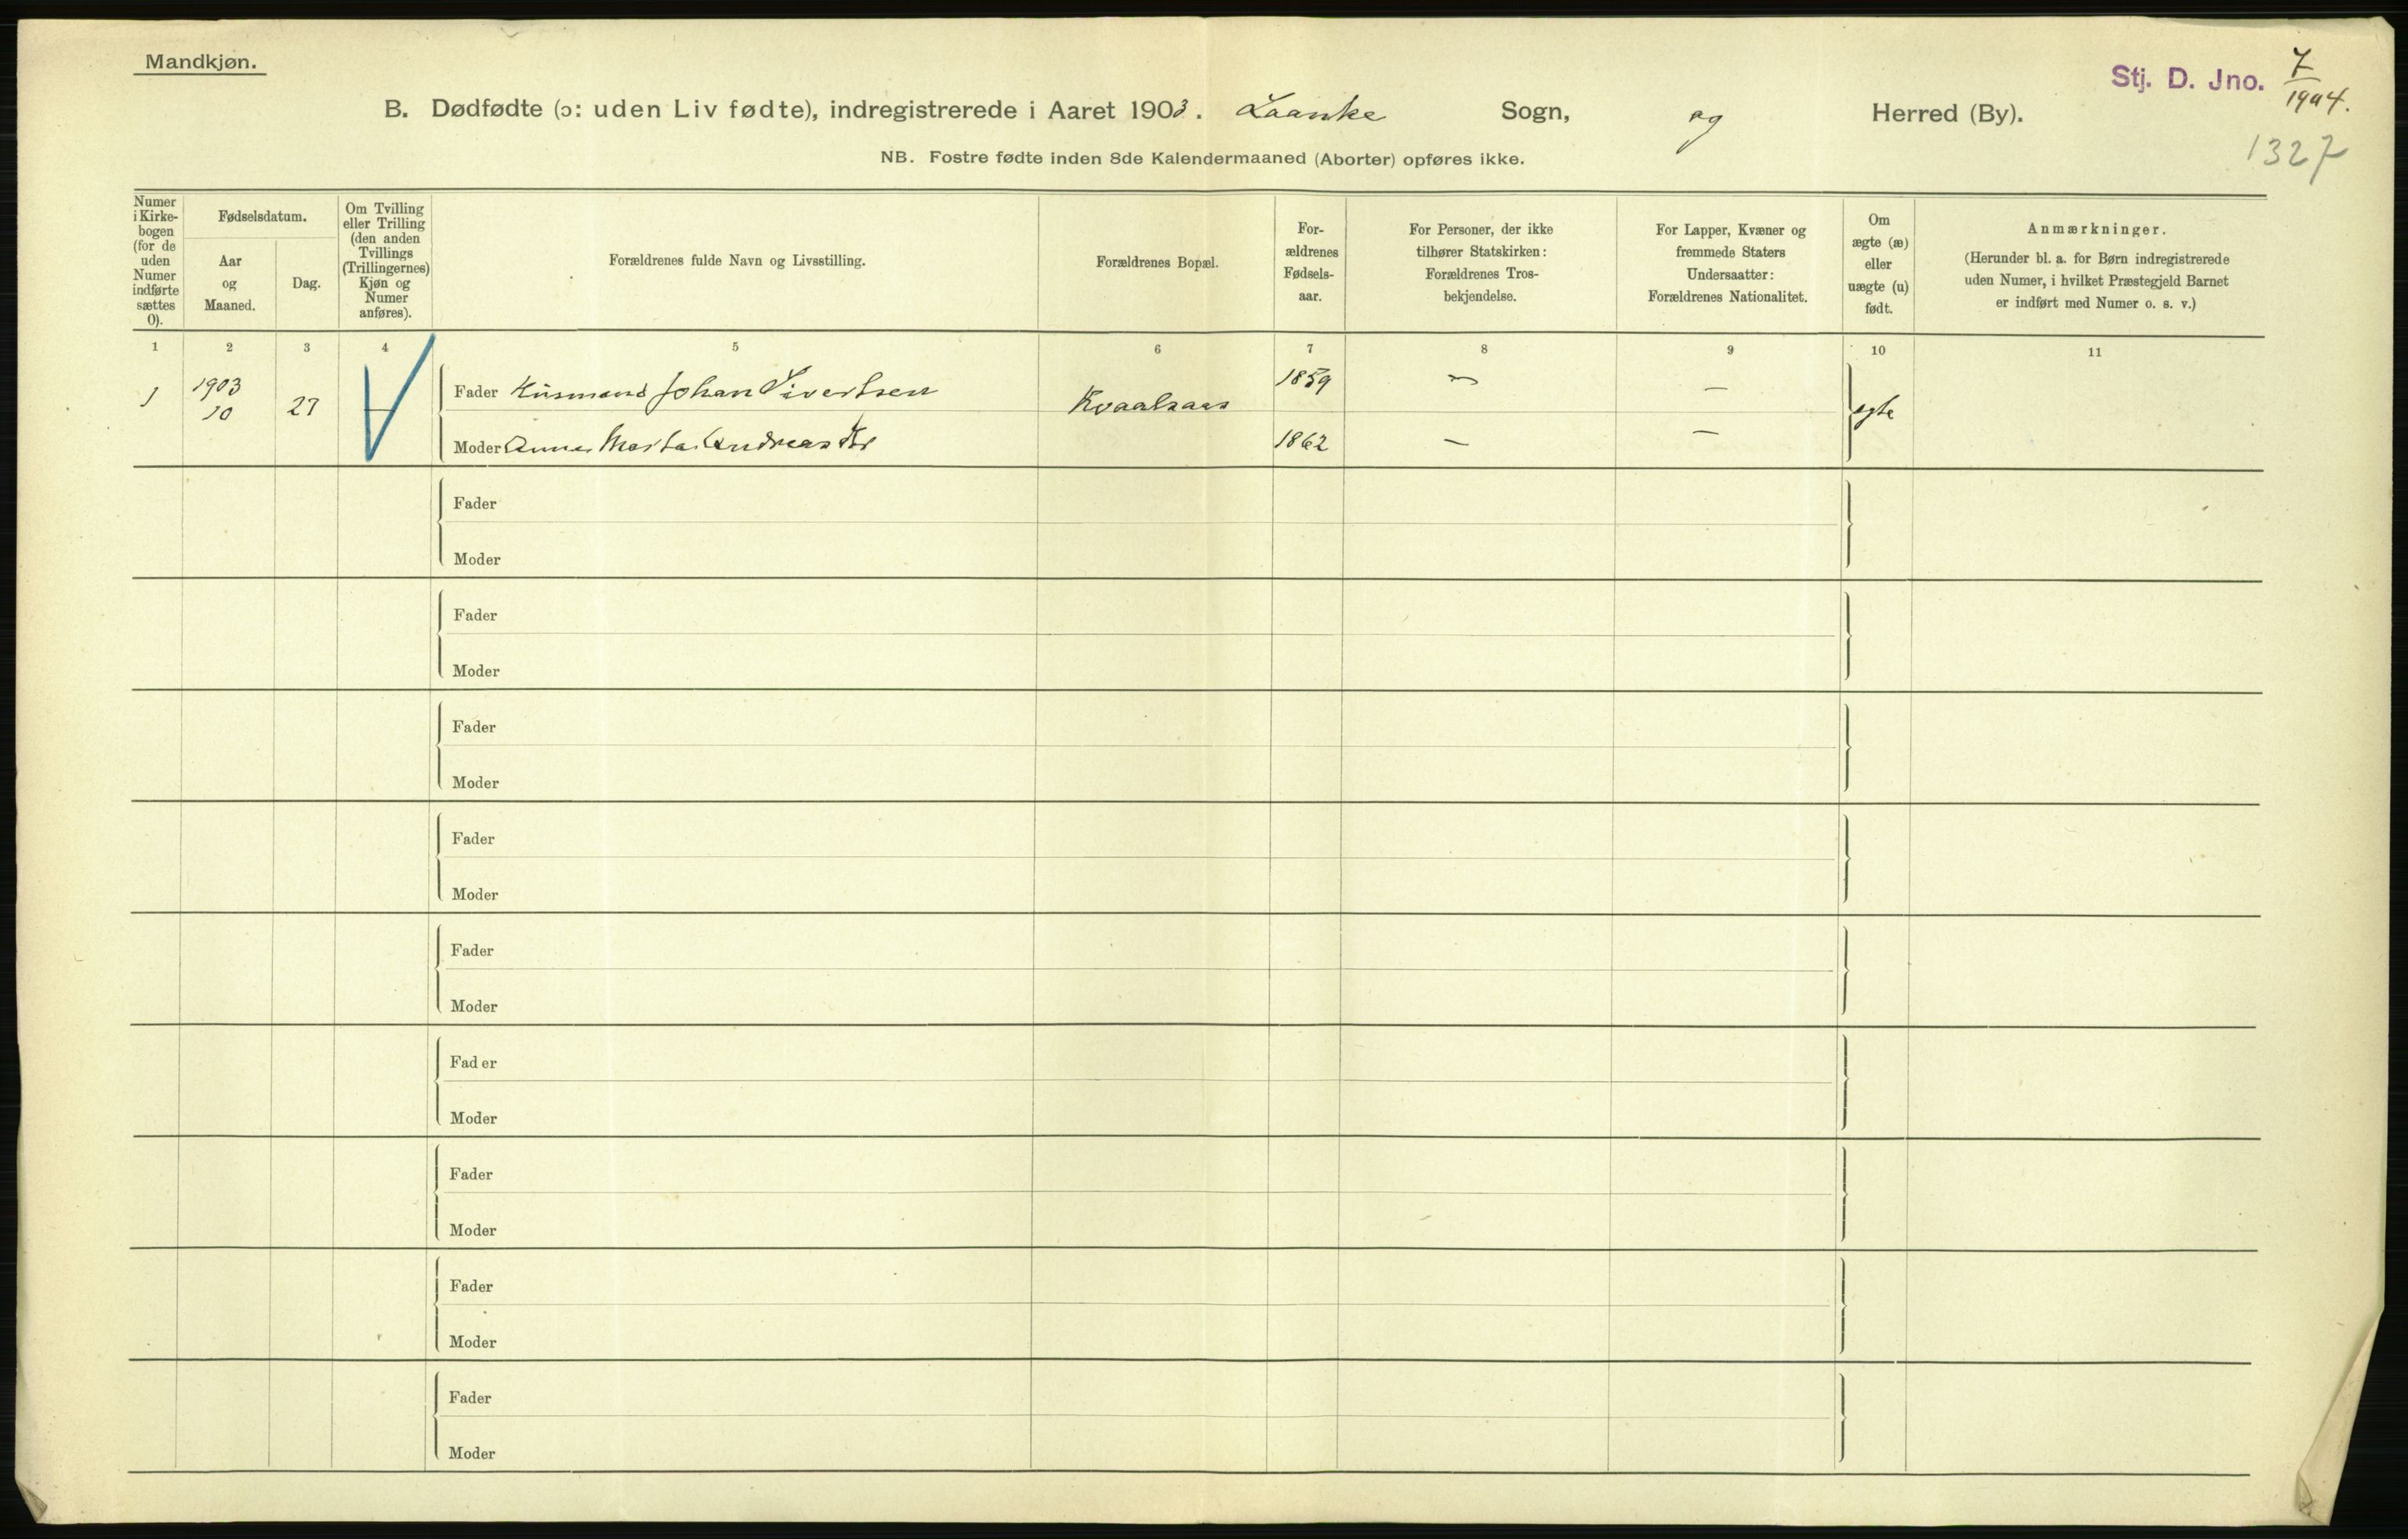 Mandkjøn.
Stj. D. Jno. 7/1904.
B. Dødfødte (ɔ: uden Liv fødte), indregistrerede i Aaret 1903. Laanke Sogn, og Herred (By).
1327
NB. Fostre fødte inden 8de Kalendermaaned (Aborter) opføres ikke.
Numer i Kirke-bogen (for de uden Numer indførte sættes 0).
Fødselsdatum.
Aar og Maaned.
Dag.
Om Tvilling eller Trilling (den anden Tvillings (Trillingernes) Kjøn og Numer anføres).
Forældrenes fulde Navn og Livsstilling.
Forældrenes Bopæl.
For-ældrenes Fødsels-aar.
For Personer, der ikke tilhører Statskirken: Forældrenes Tros-bekjendelse.
For Lapper, Kvæner og fremmede Staters Undersaatter: Forældrenes Nationalitet.
Om ægte (æ) eller uægte (u) født.
Anmærkninger.
(Herunder bl. a. for Børn indregistrerede uden Numer, i hvilket Præstegjeld Barnet er indført med Numer o. s. v.)
1 2 3 4 5 6 7 8 9 10 11
1 1903 10 27 Fader Husmand Johan Sivertsen Kvaalsaas 1859 — — egte
Moder Anne Marta Andreasdtr 1862 — —
Fader
Moder
Fader
Moder
Fader
Moder
Fader
Moder
Fader
Moder
Fader
Moder
Fader
Moder
Fader
Moder
Fader
Moder